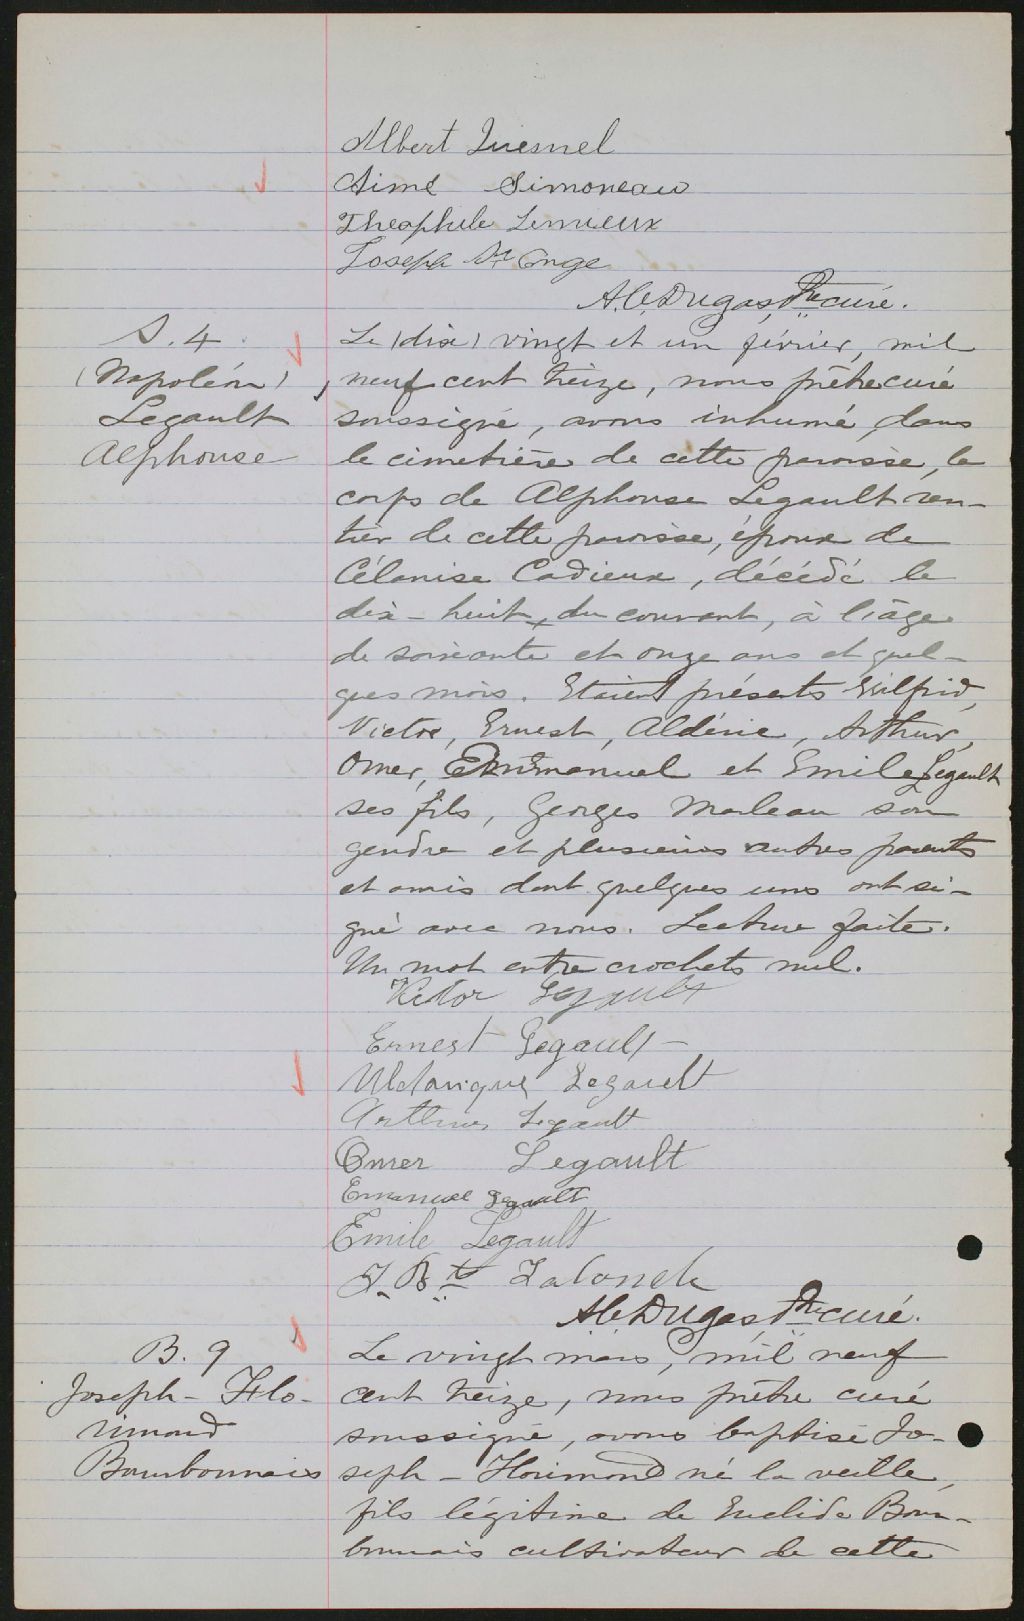 Albert Quesnel
Aimé Simoneau
Théophile Lemieux
Joseph St Onge
A.C. Dugas, Ptre curé.
S. 4.
(Napoléon)
Legault
Alphonse
Le (dix) vingt et un février, mil
neuf cent treize, nous prêtre curé
soussigné, avons inhumé, dans
le cimetière de cette paroisse, le
corps de Alphonse Legault ren-
tier de cette paroisse, époux de
Célanise Cadieux, décédé le
dix-huit, du courant, à l'âge
de soixante et onze ans et quel-
ques mois. Etaient présents Wilfrid,
Victor, Ernest, Aldéric, Arthur,
Omer, Emmanuel et Emile Legault
ses fils, Georges Marleau son
gendre et plusieurs autres parents
et amis dont quelques uns ont si-
gné avec nous. Lecture faite.
Un mot entre crochets nul.
Victor Legault
Ernest Legault
Legault
Arthur Legault
Omer Legault
Emanuel Legault
Emile Legault
J. Bte Lalonde
A.C. Dugas, Ptre curé.
B. 9
Joseph-Flo-
rimond
Bourbonnais
Le vingt mars, mil neuf
cent treize, nous prêtre curé
soussigné, avons baptisé Jo-
seph-Florimond né la veille,
fils légitime de Euclide Bour-
bonnais cultivateur de cette